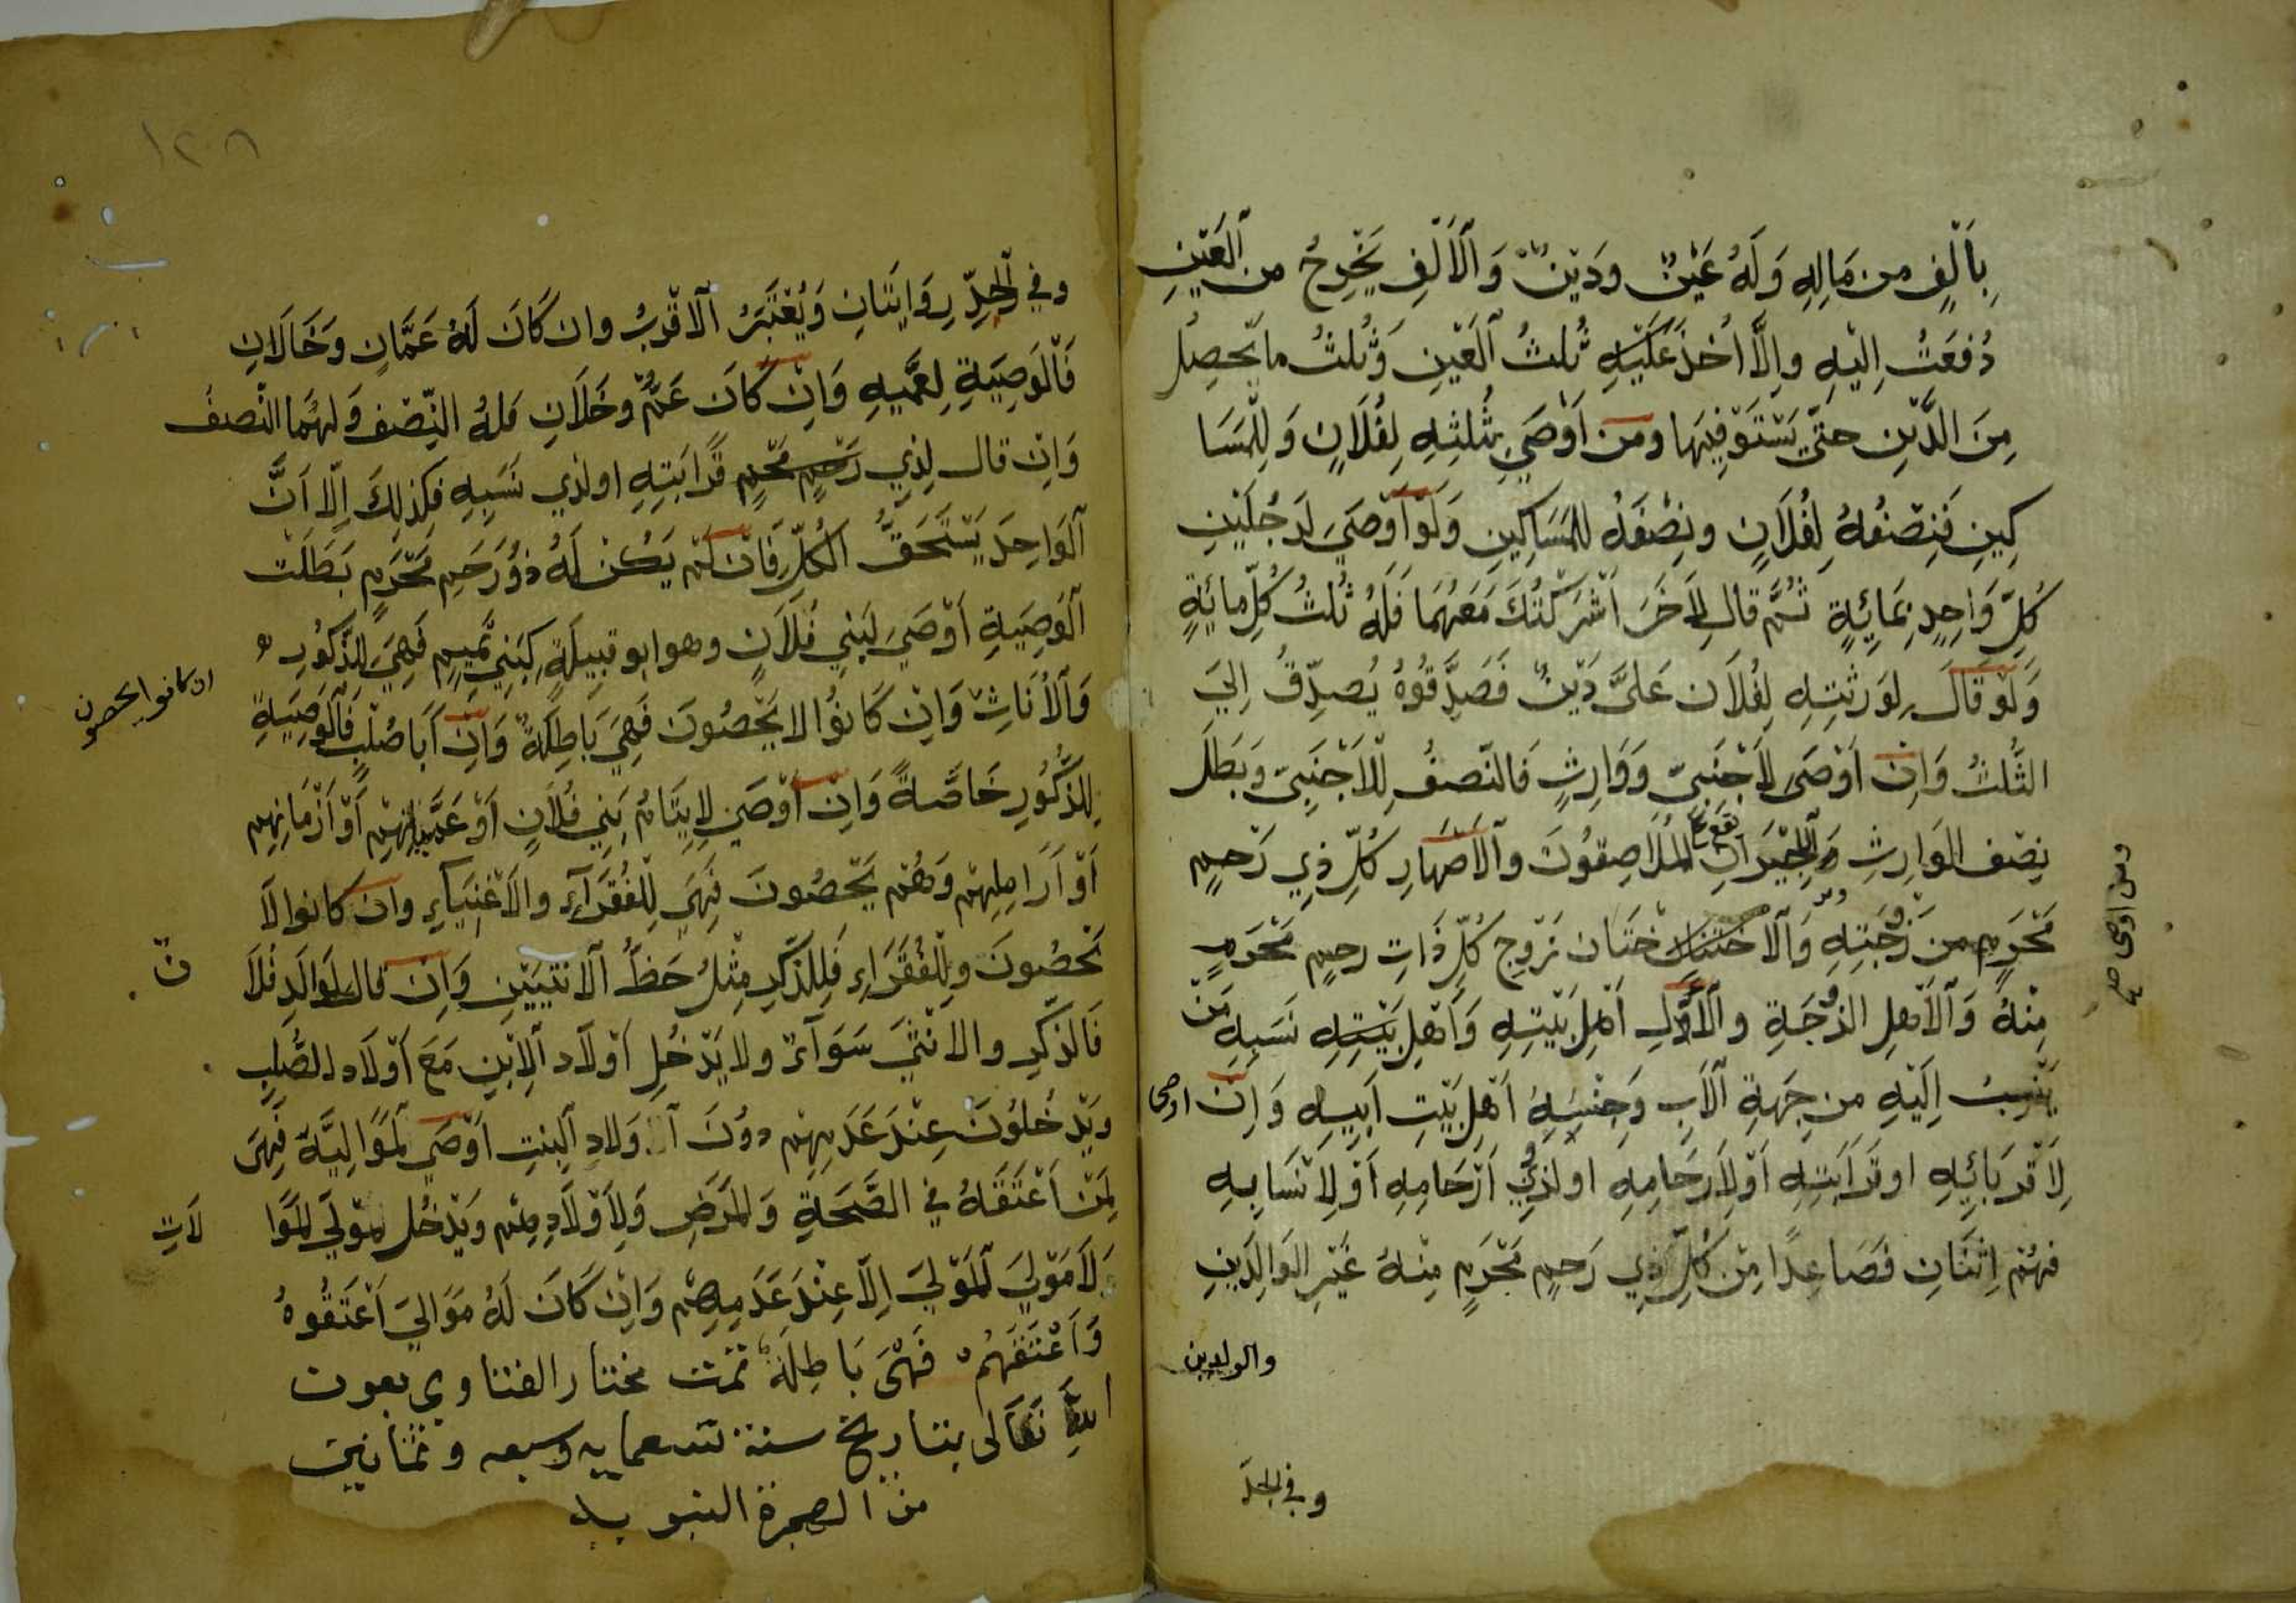 بِاَلْفٍ من مَالِهِ وَلَهُ عَيْنٌ ودَيْنٌ وَالْاَلْفُ يَخْرِجُ من العَيْنِ
دُفِعَتْ اِلَيْهِ وإلَّا اُخذَ عَلَيْهِ ثُلثُ الْعَيْنِ وَثُلثُ ما يَحصِلُ
مِنَ الدَّيْنِ حتّي يَسْتَوْفِيَها ومَن اَوْصَي بِثُلُثِهِ لِفُلَانٍ وَلِلْمَسَا
كِينِ فَنِصْفُهُ لِفُلَانٍ ونِصْفَهُ لِلمَسَاكِينِ وَلَوْ اَوْصَيَ لرَجُلَيْنِ
كُلِّ وَاحِدٍ بِمَائِةٍ ثُمَّ قال لِاٰخَرَ اَشْرَكْتُكَ مَعَهُمَا فَلَهُ ثُلثُ كُلِّ مائِةٍ
وَلَوْ قَالَ لِوَرثَتِهِ لِفُلَان عَلَيَّ دَيْنٌ فَصَدِّقُوهُ يُصَدِّقُ اِليَ
الثُّلثُ وَاِن اَوْصَى لِاَجْنَبِيّ وَوَارِثٍ فَالنّصفُ لِلاَجْنَبِيّ وبَطَلَ
نِصْف الوَارِثِ وَالجِيْرَانِ المُلَاصِقُونَ والاَصْهَارِ كُلِّ ذِي رَحِمٍ
مَحْرَمٍ من زَوْجَتِهِ وَالاخْتَان خَتَان زَوِج كُلِّ ذَاتِ رحِمٍ مَحْرَمٍ
مِنْهُ وَالاَهلِ الزوْجَةِ والْاٰلِ اَهْلِ بَيْتِهِ وَاَهْلِ بَيْتِهِ نَسَبِهِ مَنْ
يَنْسِبُ اِلَيْهِ من جِهَةِ الاَبِ وَجِنْسِهُ اَهْلِ بَيْتِ اَبِيهِ وَاِن اوصى
لِاَقْرَبَائِهِ او قَرَابَتِهِ اَوْ لِاَرحَامِهِ او لذَوِي اَرْحَامِهِ اَوْ لِاَنْسَابِهِ
فهُمْ اِثْنَانِ فَصَاعِدًا مِن كُلِّ ذِي رَحِمٍ مَحْرَمٍ مِنْهُ غَيْرِ الوَالِدَينِ
والولدين
وفي الجد
ومن اوصى صح
١٢٠٨
وفي الجَدِّ رِوَايَتَانِ وَيُعْتَبَرُ الاَقْرَبُ وان كَانَ لَهُ عَمَّانِ وَخَالَانِ
فَالْوَصِيَةِ لِعَمَّيهِ وَاِنْ كَانَ عَمٌّ وخَلَانِ فلهُ النِّصْف وَلهُمَا النّصفُ
وَاِن قال لِذِي رَحِمٍ مَحْرَمٍ قَرَابَتِهِ او لذي نَسَبِهِ فَكذلِكَ اِلّا اَنَّ
الوَاحِدَ يَسْتَحَقُّ الكُلِّ فَاِن لَمْ يَكُنْ لَهُ ذوُ رَحِمٍ مَحْرَمٍ بَطَلَتْ
الْوَصِيَةِ اَوْصَيَ لبَنِي فُلَانٍ وهو ابو قبِيلَةٍ كَبَنِي تَمِيمٍ فَهِيَ للذُّكُورِ
ان كانوا يحصون
وَالْاُنَاثِ وَاِن كَانوُا لا يَحْصُونَ فَهِيَ بَاطِلَةٌ وَاِن اَبَا صُلْبٍ فَالْوَصِيَةِ
لِلذُّكُورِ خَاصَّةً وَاِن اَوْصَي لِايتَامُ بَنِي فُلَانٍ اَوْ عَمْيَانِهِمْ اَوْ اَزْمَانِهِم
اَوْ اَرَامِلِهِمْ وَهُمْ يَحْصُونَ فَهِيَ لِلْفُقَرَاءِ والاَغْنِيَاءِ وَاِن كانوا لاَ
يَحْصُونَ وَلِلْفُقَرَاءِ فَلِلذَّكَرِ مِثْلُ حَظُّ الانثيَيْنِ وَاِن قال لِوَالَدِ فُلَا
نّ
فَالذَكَرِ والانْثَيَ سَوَاءٌ ولا يَدْخُلِ اَوْلاَد الاِبْنِ مَعَ اَوْلَادِ الصُّلْبِ
وَيَدْخُلُونَ عِنْدَ عَدَمِهِمْ دوُنَ اَوْلادِ البِنتِ اَوْصَي لمَوَالِيَّة فَهِيَ
لِمَنْ اَعْتَقَهُ في الصَّحَةِ وَالمَرَضِ وَلِاَوْلَادِهِمْ ويَدْخُل مَوْلَي المَوَا
لَاتِ
وَلَا مَوْلَيَ المَوْلَيَ اِلاّ عِنْدَ عَدَمِهِمْ وَاِنْ كَانَ لَهُ مَوَالِيَ اَعْتَقُوهُ
وَاَعْتَقَهُمْ فَهْيَ بَاطِلَةٌ تمت مختار الفتاوي بعون
اللهِ تَعَالى بتاريخ سنة تسعمايه وسبعه وثمانين
من الهجرة النبويه